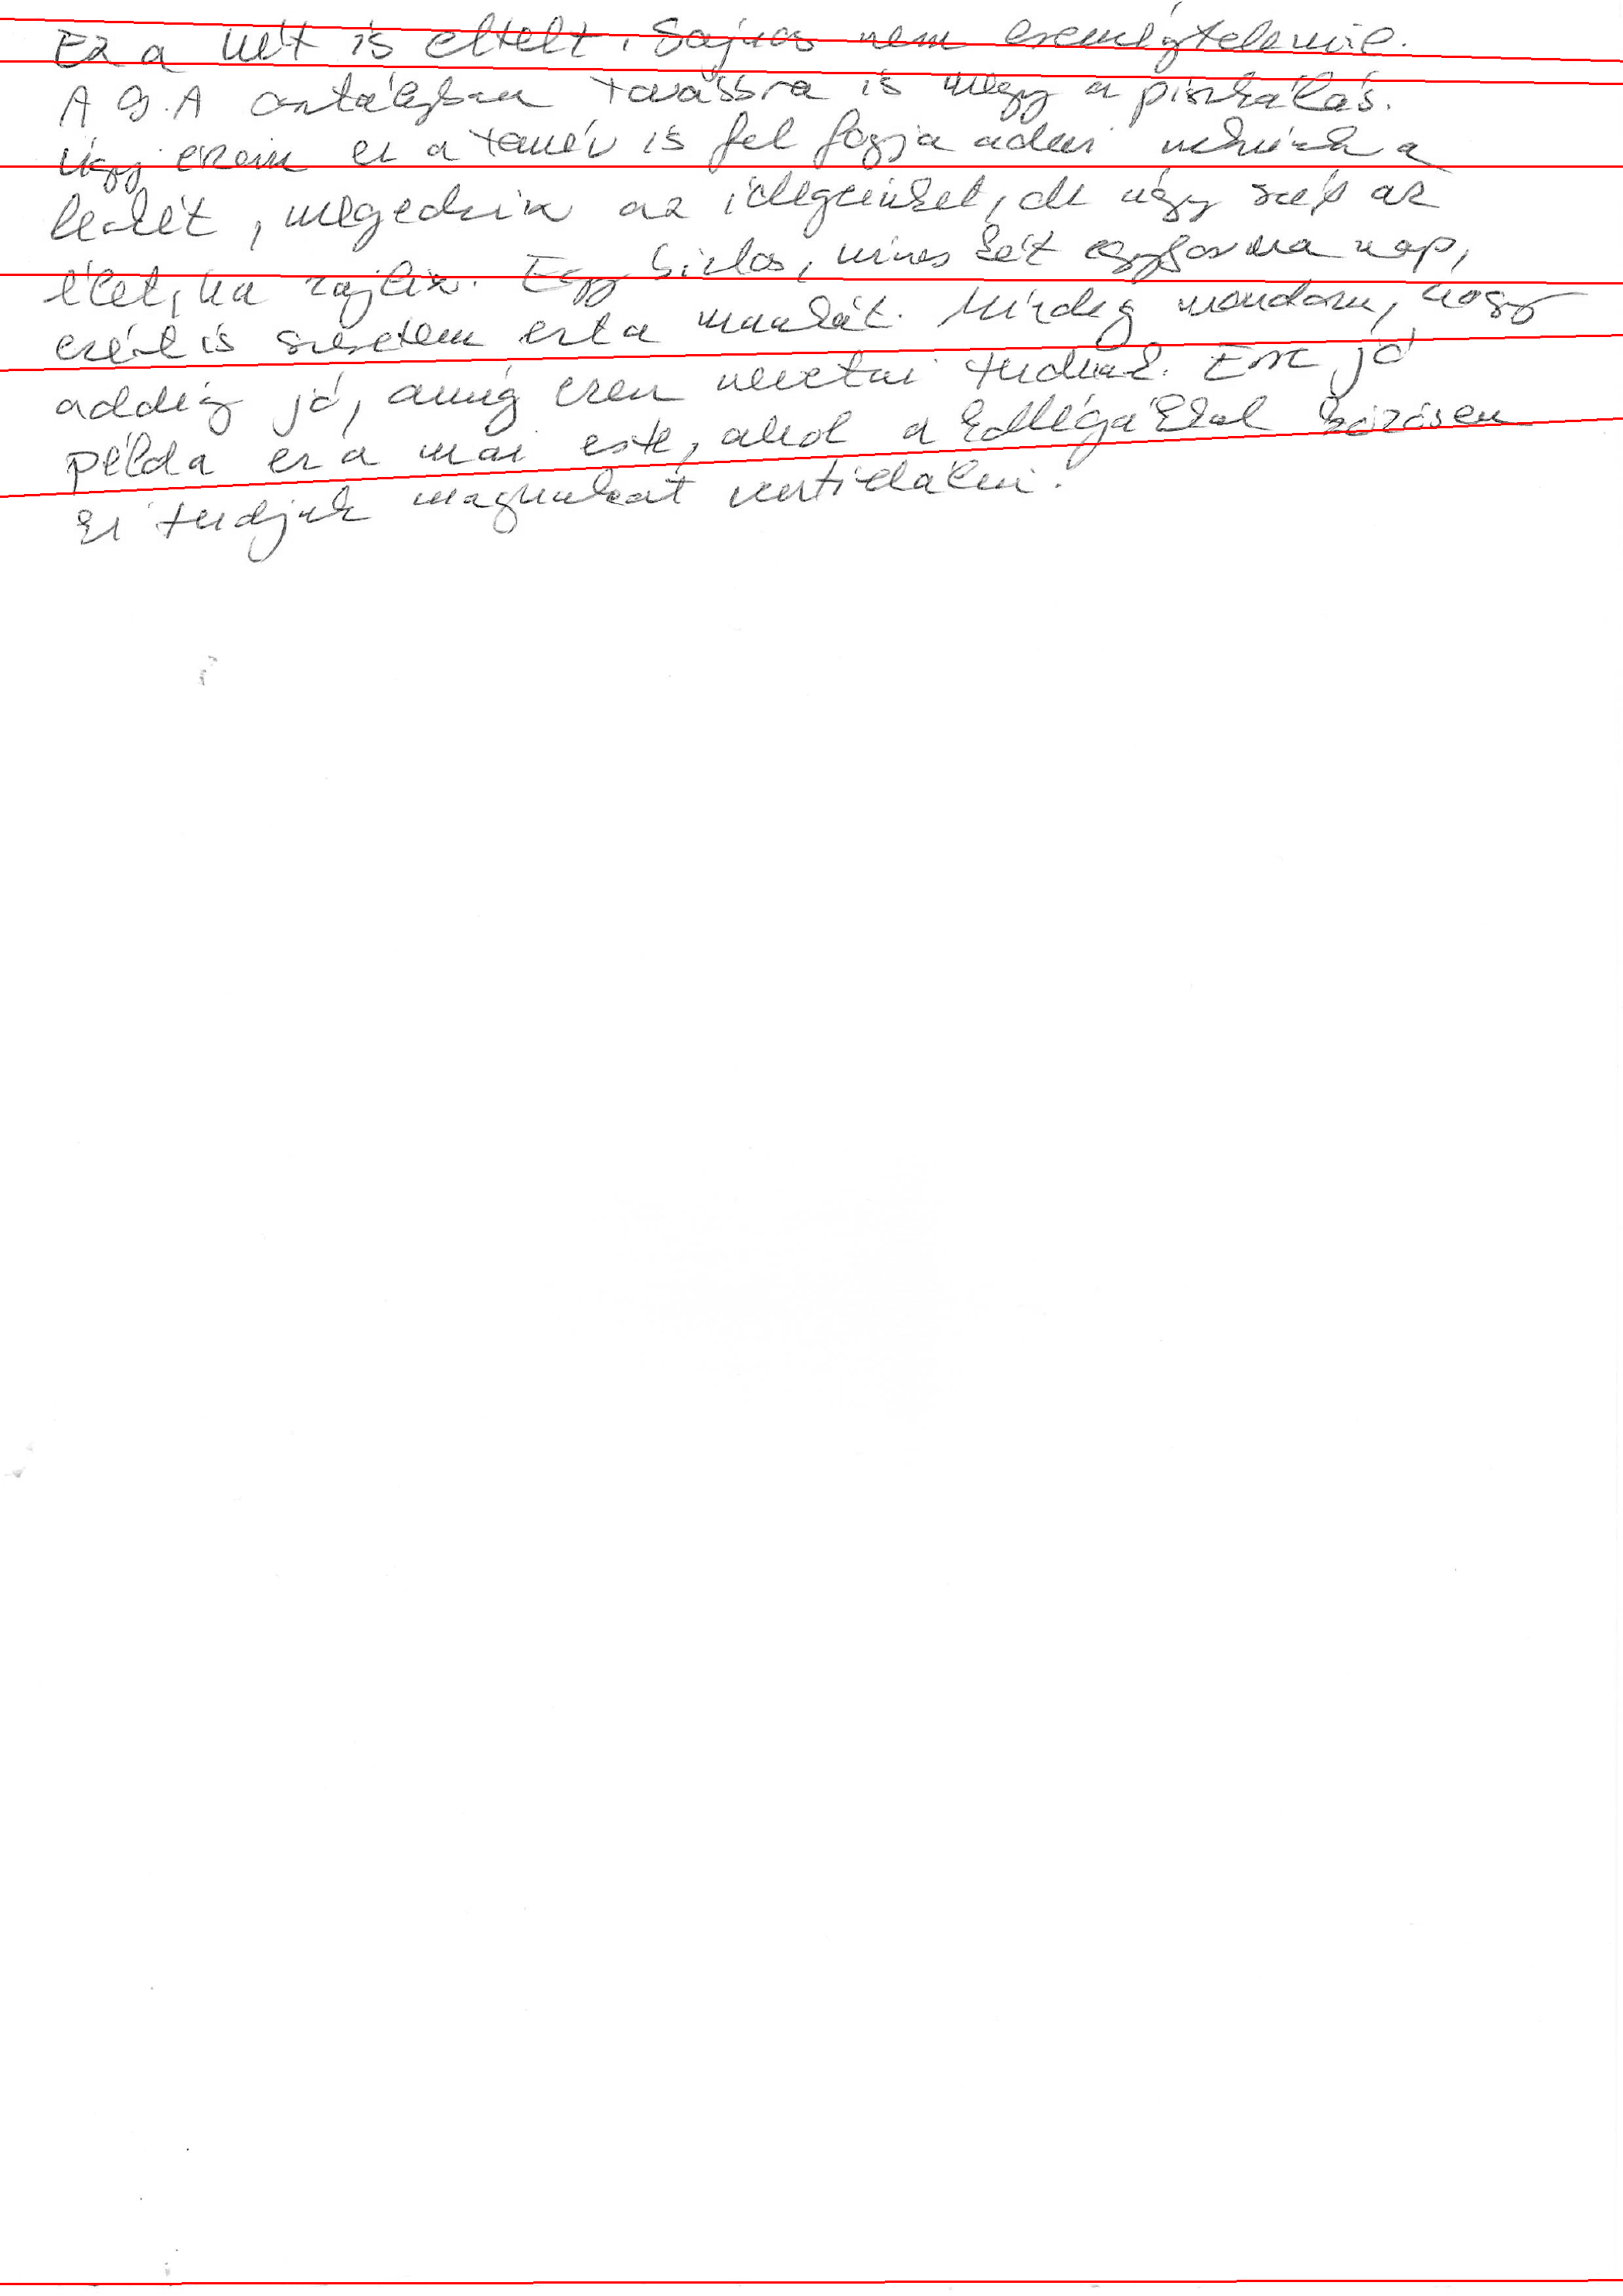 Ez a hét is eltelt, sajnos nem eseménytelenül.
A 9.A osztályban továbbra is megy a piszkálás.
Úgy érzem ez a tanév is fel fogja adni nekünk a
leckét, megedzik az idegeinket, de úgy szép az
élet, ha zajlik. Egy biztos, nincs két egyforma nap,
ezért is szeretem ezt a munkát. Mindig mondom, hogy
addig jó, amíg ezen nevetni tudunk. Erre jó
példa ez a mai este, ahol a kollégákkal közösen
ki tudjuk magunkat ventilálni.